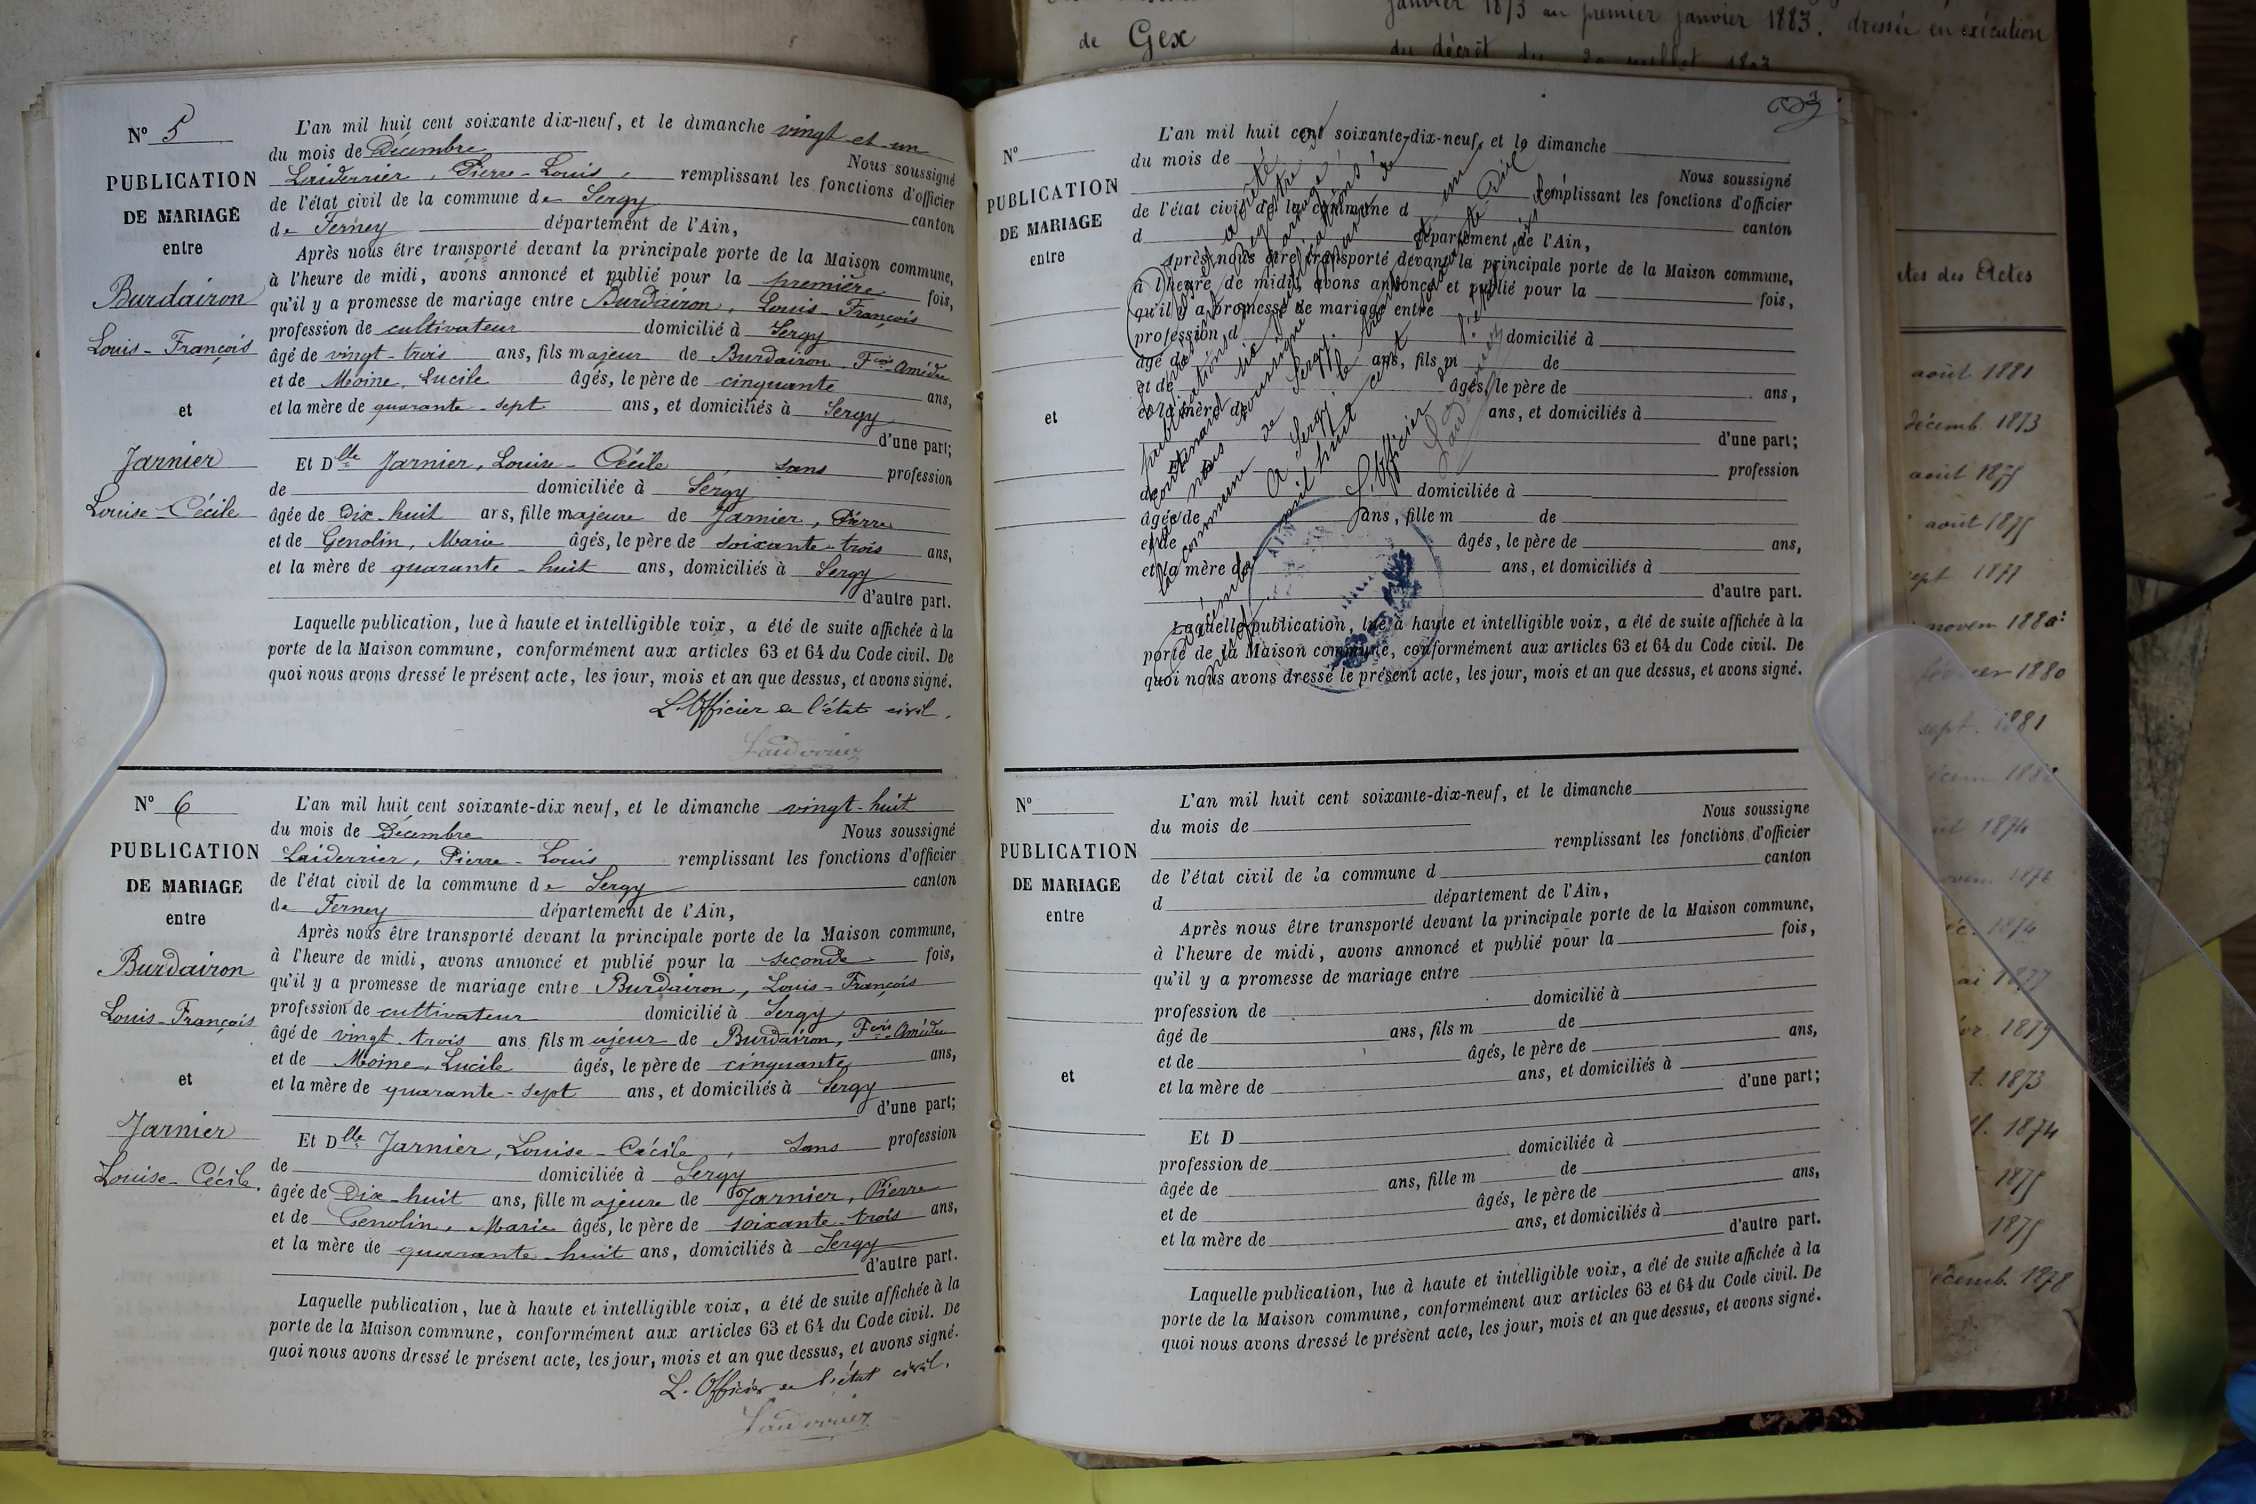 de Gex
janvier 1873 au premier janvier 1883. dressée en exécution
du décret du 20 juillet
N° 5
PUBLICATION
DE MARIAGE
entre
Burdairon
Louis-François
et
Jarnier
Louise-Cécile
L'an mil huit cent soixante dix-neuf, et le dimanche vingt et un
du mois de Décembre Nous soussigné
Laiderrier, Pierre-Louis, remplissant les fonctions d'officier
de l'état civil de la commune de Sergy canton
de Ferney département de l'Ain,
Après nous être transporté devant la principale porte de la Maison commune,
à l'heure de midi, avons annoncé et publié pour la première fois,
qu'il y a promesse de mariage entre Burdairon, Louis-François
profession de cultivateur domicilié à Sergy
âgé de vingt-trois ans, fils majeur de Burdairon, Fçois Amédée
et de Moine, Lucile âgés, le père de cinquante ans,
et la mère de quarante-sept ans, et domiciliés à Sergy
d'une part;
Et Dlle Jarnier, Louise-Cécile sans profession
de domiciliée à Sergy
âgée de Dix-huit ans, fille majeure de Jarnier, Pierre
et de Genolin, Marie âgés, le père de soixante-trois ans,
et la mère de quarante-huit ans, domiciliés à Sergy
d'autre part.
Laquelle publication, lue à haute et intelligible voix, a été de suite affichée à la
porte de la Maison commune, conformément aux articles 63 et 64 du Code civil. De
quoi nous avons dressé le présent acte, les jour, mois et an que dessus, et avons signé.
L'Officier de l'état civil.
Laiderrier
N° 6
PUBLICATION
DE MARIAGE
entre
Burdairon
Louis-François
et
Jarnier
Louise-Cécile.
L'an mil huit cent soixante-dix neuf, et le dimanche vingt-huit
du mois de Décembre Nous soussigné
Laiderrier, Pierre-Louis remplissant les fonctions d'officier
de l'état civil de la commune de Sergy canton
de Ferney département de l'Ain,
Après nous être transporté devant la principale porte de la Maison commune,
à l'heure de midi, avons annoncé et publié pour la seconde fois,
qu'il y a promesse de mariage entre Burdairon, Louis-François
profession de cultivateur domicilié à Sergy
âgé de vingt-trois ans fils majeur de Burdairon, Fçois Amédée
et de Moine, Lucile âgés, le père de cinquante ans,
et la mère de quarante-sept ans, et domiciliés à Sergy
d'une part;
Et Dlle Jarnier, Louise-Cécile, sans profession
de domiciliée à Sergy
âgée de Dix-huit ans, fille majeure de Jarnier, Pierre
et de Genolin, Marie âgés, le père de soixante-trois ans,
et la mère de quarante-huit ans, domiciliés à Sergy
d'autre part.
Laquelle publication, lue à haute et intelligible voix, a été de suite affichée à la
porte de la Maison commune, conformément aux articles 63 et 64 du Code civil. De
quoi nous avons dressé le présent acte, les jour, mois et an que dessus, et avons signé.
L'Officier de l'état civil.
Laiderrier
N°
PUBLICATION
DE MARIAGE
entre
et
L'an mil huit cent soixante-dix-neuf, et le dimanche
du mois de Nous soussigné
remplissant les fonctions d'officier
de l'état civil de la commune d canton
d département de l'Ain,
Après nous être transporté devant la principale porte de la Maison commune,
à l'heure de midi, avons annoncé et publié pour la fois,
qu'il y a promesse de mariage entre
profession d domicilié à
âgé de ans, fils m de
et de âgés, le père de ans,
et la mère de ans, et domiciliés à
d'une part;
profession
de domiciliée à
âgée de ans, fille m de
et de âgés, le père de ans,
et la mère de ans, et domiciliés à
d'autre part.
Laquelle publication, lue à haute et intelligible voix, a été de suite affichée à la
porte de la Maison commune, conformément aux articles 63 et 64 du Code civil. De
quoi nous avons dressé le présent acte, les jour, mois et an que dessus, et avons signé.
arrêté
publications de mariage
contenant six publications
par nous soussigné Maire de
la commune de Sergy.
A Sergy le trente et un
Décembre mil huit cent soixante-dix
neuf
L'Officier de l'état civil
AIN
N°
PUBLICATION
DE MARIAGE
entre
et
L'an mil huit cent soixante-dix-neuf, et le dimanche
du mois de Nous soussigné
remplissant les fonctions d'officier
de l'état civil de la commune d canton
d département de l'Ain,
Après nous être transporté devant la principale porte de la Maison commune,
à l'heure de midi, avons annoncé et publié pour la fois,
qu'il y a promesse de mariage entre
profession de domicilié à
âgé de ans, fils m de
et de âgés, le père de ans,
et la mère de ans, et domiciliés à
d'une part;
Et D
profession de domiciliée à
âgée de ans, fille m de
et de âgés, le père de ans,
et la mère de ans, et domiciliés à
d'autre part.
Laquelle publication, lue à haute et intelligible voix, a été de suite affichée à la
porte de la Maison commune, conformément aux articles 63 et 64 du Code civil. De
quoi nous avons dressé le présent acte, les jour, mois et an que dessus, et avons signé.
des Actes
août 1881
décemb. 1873
août 1875
août 1875
sept 1877
novem 1880
février 1880
sept. 1881
1874
1874
1879
1873
1874
1875
1875
décemb. 1878